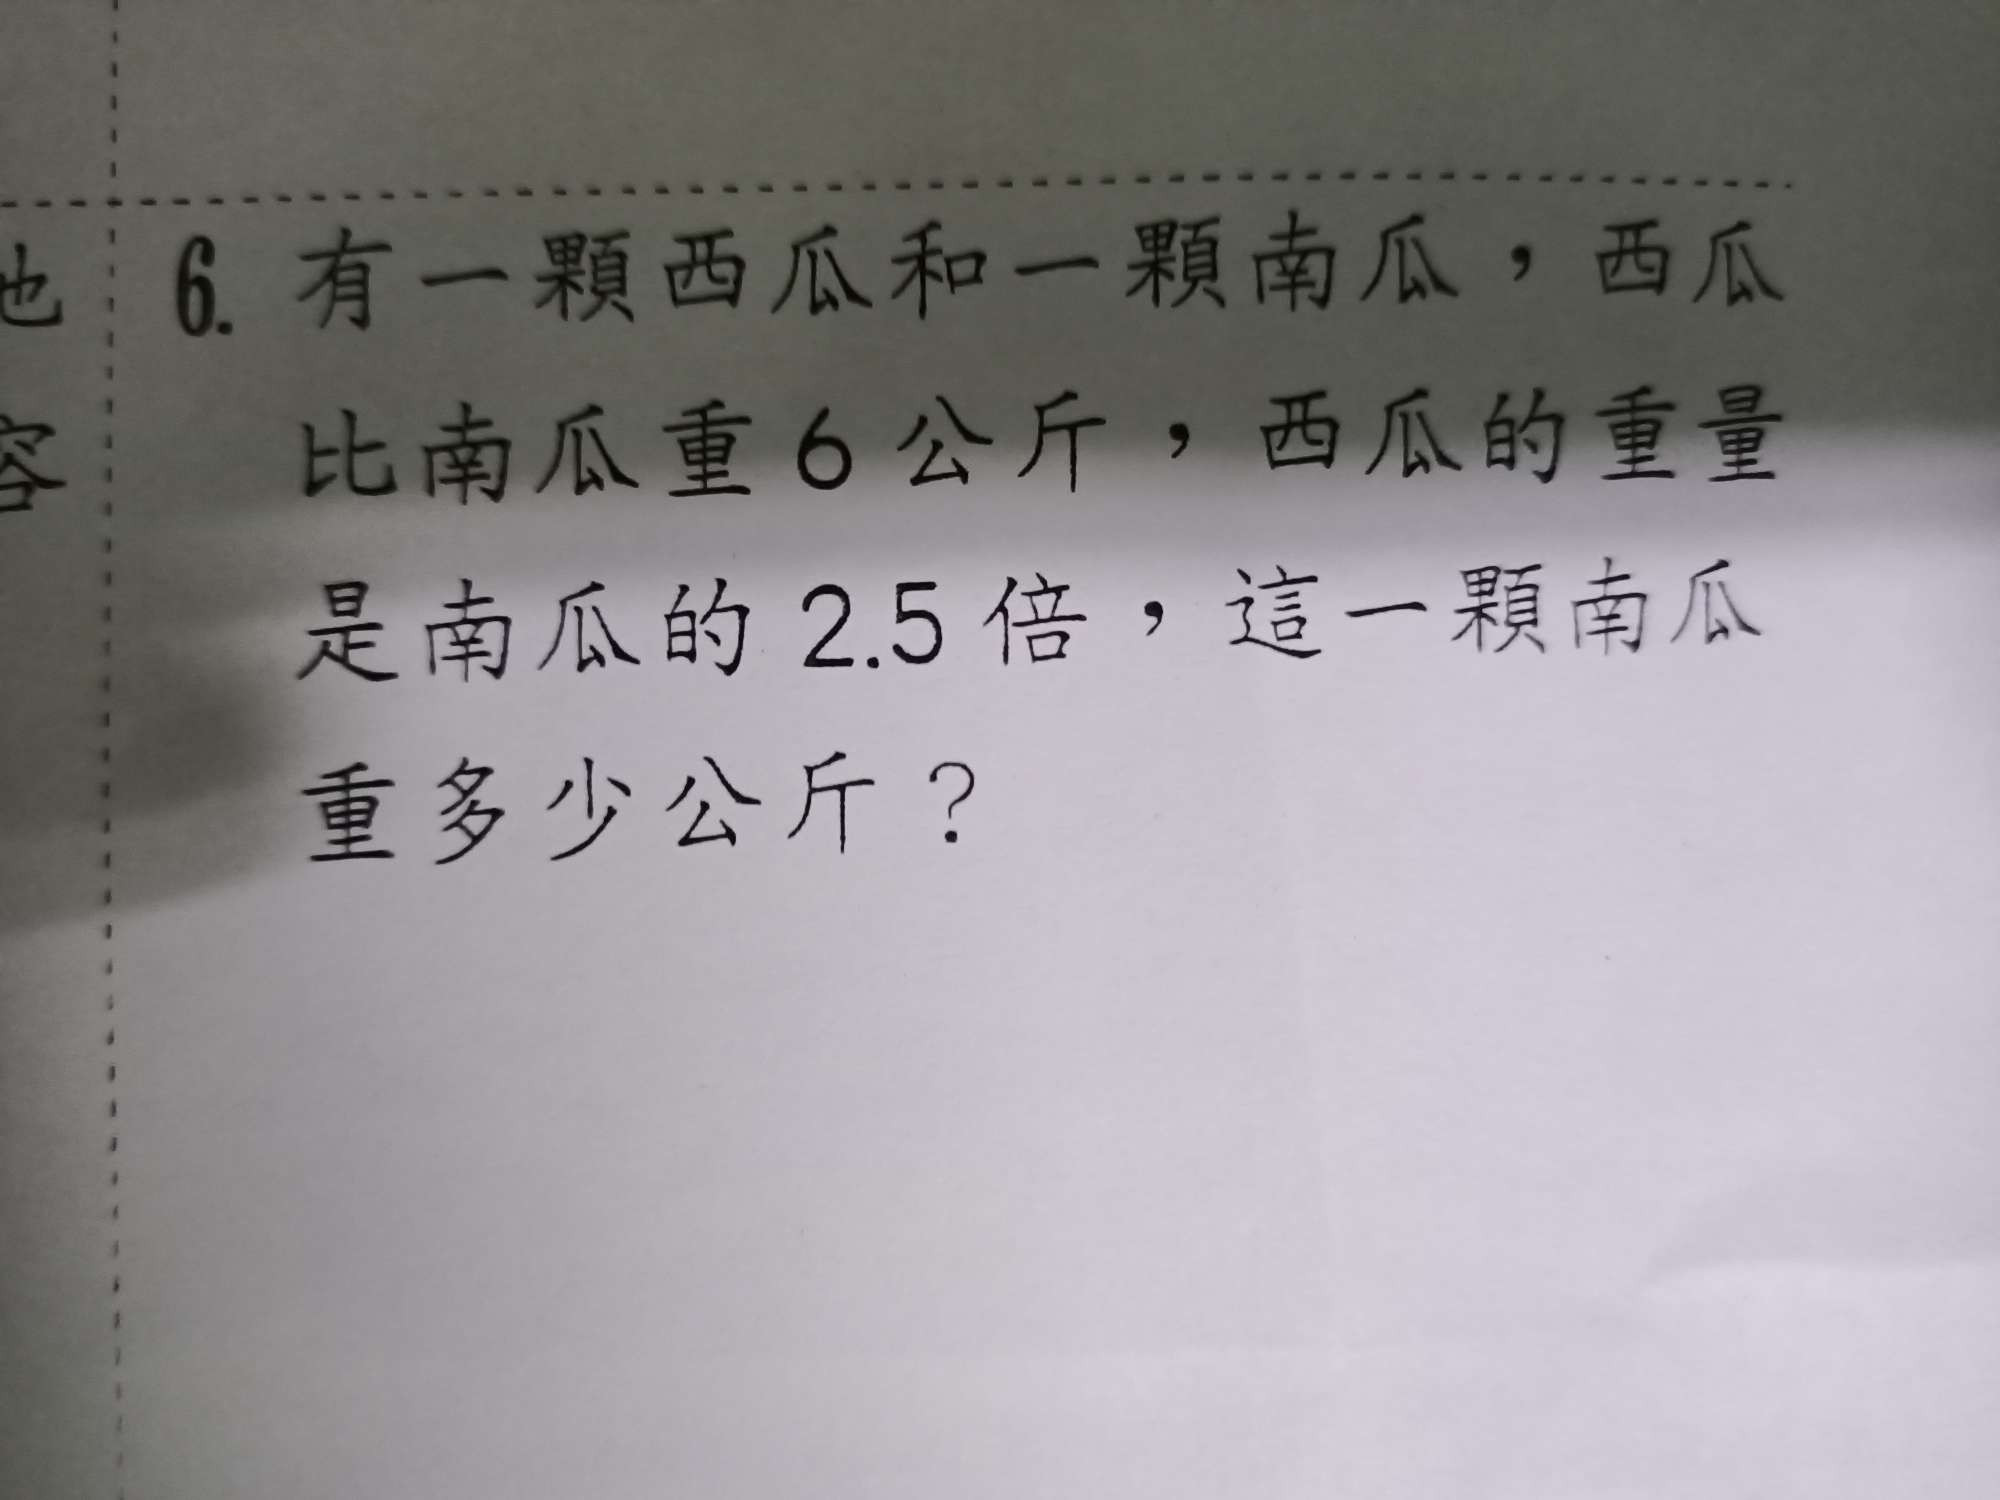 6. 有一顆西瓜和一顆南瓜，西瓜
比南瓜重6公斤，西瓜的重量
是南瓜的2.5倍，這一顆南瓜
重多少公斤？
他
容